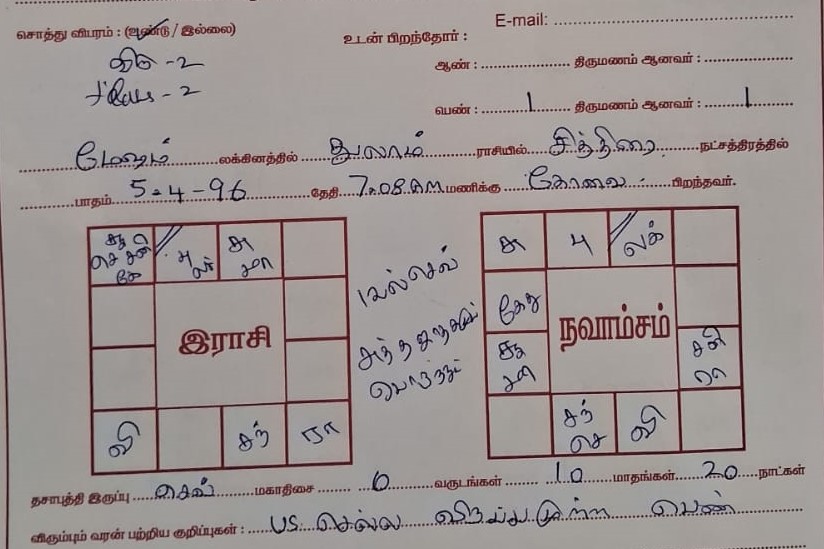 E-mail:
சொத்து விபரம் : (உண்டு / இல்லை)
உடன் பிறந்தோர் :
வீடு - 2
- 2
ஆண் : திருமணம் ஆனவர் :
பெண் : 1 திருமணம் ஆனவர் : 1
மேஷம் லக்கினத்தில் துலாம் ராசியில் சித்திரை நட்சத்திரத்தில்
பாதம் 5-4-96 தேதி 7.08 AM மணிக்கு கோவை பிறந்தவர்.
சூ
செ சனி
கே
பு
லக்
சு
மா
இராசி
வி
சந்
ரா
சுத்த ஜாதகம்
சு
பு
லக்
கேது
சூ
நவாம்சம்
சனி
ரா
சந்
செ
வி
தசாபுத்தி இருப்பு செவ் மகாதிசை 6 வருடங்கள் 10 மாதங்கள் 20 நாட்கள்
விரும்பும் வரன் பற்றிய குறிப்புகள் : US செல்ல விருப்பமுள்ள பெண்